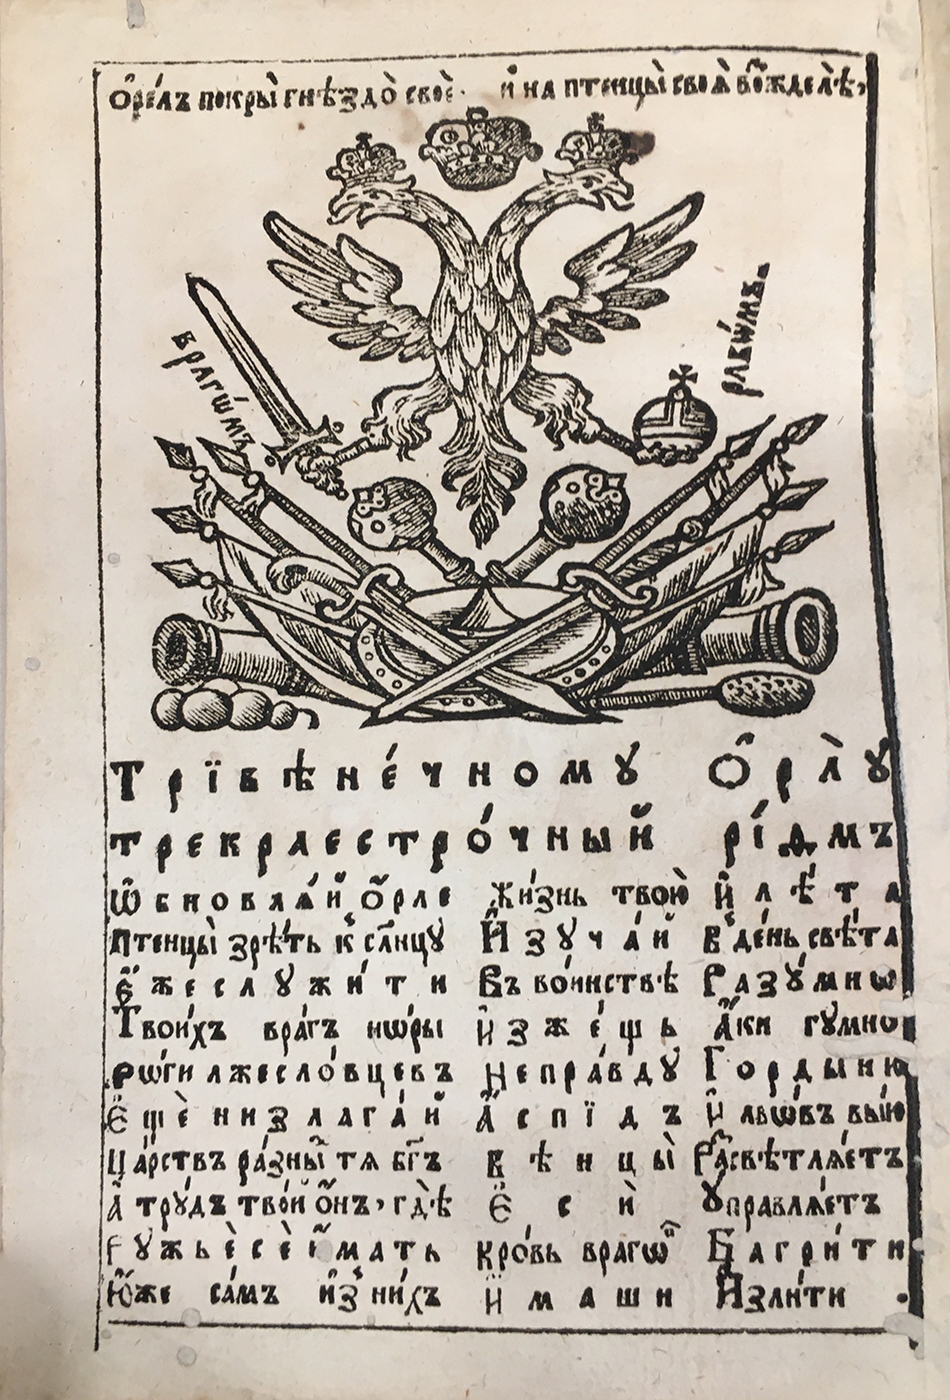 Ѻ҆ре́лъ покры̀ гнѣздо̀ своѐ · и҆ на птенцы̀ своѧ̀ вожделѣ̀,
врагѡ́мъ
рабѡ́мъ.
Трївѣне́чному Ѻ҆рлꙋ̀
трекраестро́чный рі́ѳмъ
Ѡ҆бновлѧ́й Ѻ҆рле жи́знь твою̀ и҆ лѣ́та
птенцы̀ зрѣ́ть к̾ сл҃нцꙋ И҆зꙋча́й в̾ де́нь свѣ́та
Е҆́же слꙋжи́ти Въ во́инствѣ Разꙋ́мнѡ
Твои́хъ вра́гъ нѡ́ры и҆зже́щь а҆́ки гꙋмно
Рѡ́ги лжесло́вцевъ Непра́вдꙋ Горды́ню
Е҆щѐ низлага́й А҆́спїдъ и҆ львѡ́въ вы́ю
Ца́рствъ ра́зныⷯ тѧ бг҃ъ вѣнцы̀ Расвѣтлѧ́етъ
А҆ трꙋ́дъ тво́й ѻ҆́нъ, гдѣ̀ Е҆сѝ ᲂу҆правлѧ́етъ
Рꙋжьѐ сѐ и҆́мать кро́вь врагѡ́въ Багри́ти
Ю҆́же са́мъ и҆з̾ ни́хъ и҆́маши И҆зли́ти .